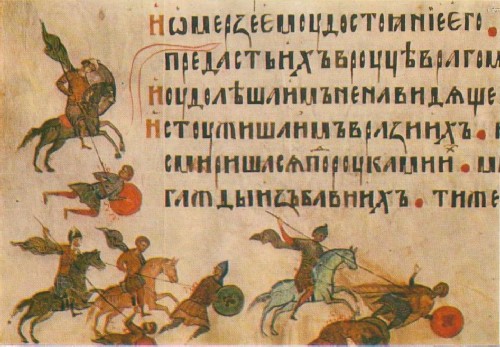 Иѡмерзеемоудостоꙗнїеего ·
предастьихъвроуцѣврагом
Иоудолѣшаимъненавидѧще
Истоужишаимъвразиихъ ·
смиришасѧпороукамии · м
гаждыизбавиихъ · тиже